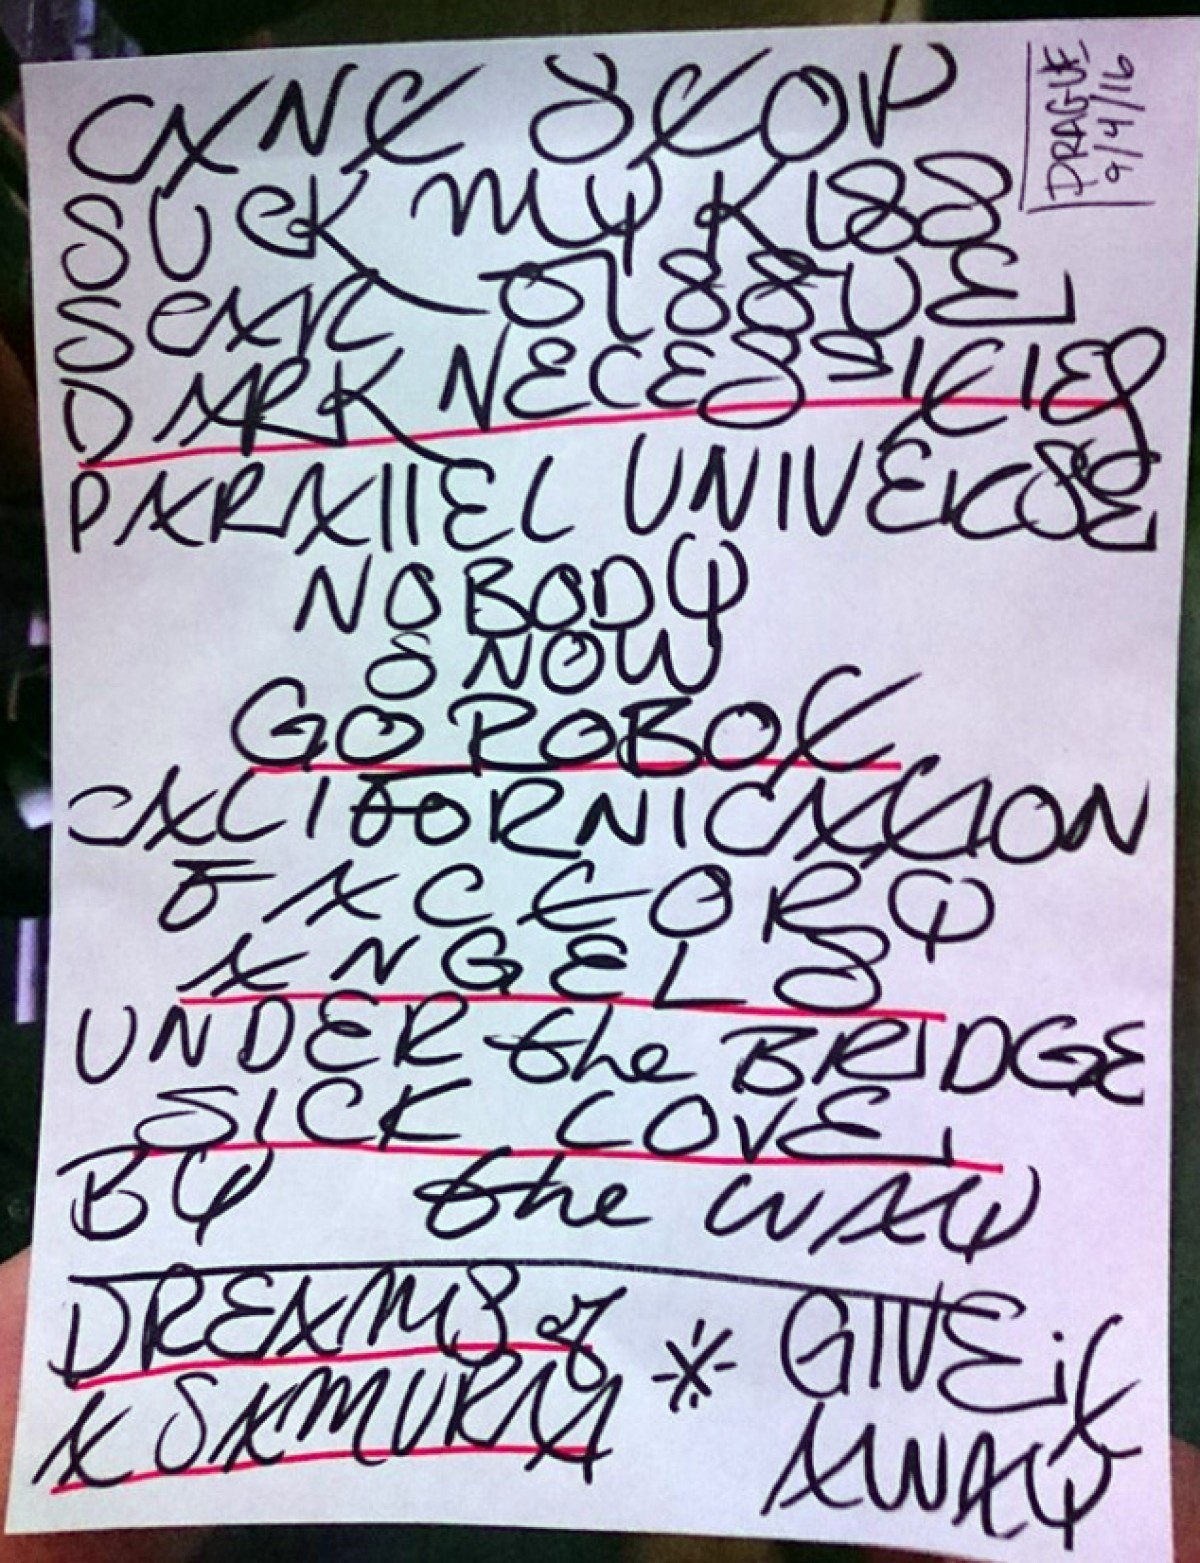 PRAGUE
9/4/16
CANT STOP
SUCK MY KISS
SCAR TISSUE
DARK NECESSITIES
PARALLEL UNIVERSE
NOBODY
SNOW
GO ROBOT
CALIFORNICATION
FACTORY
ANGELS
UNDER the BRIDGE
SICK LOVE
BY the WAY
DREAMS of
A SAMURAI
* GIVE it
AWAY